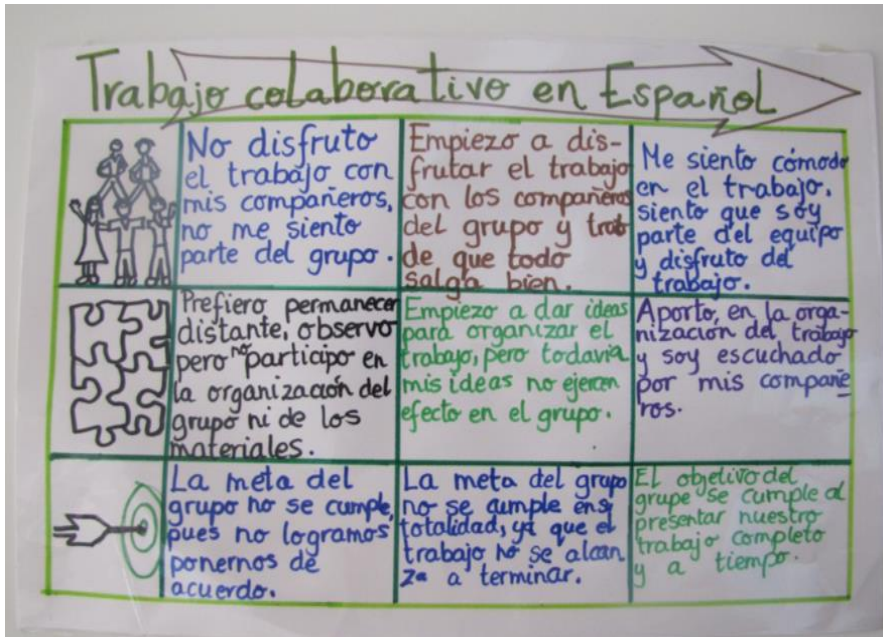 Trabajo colaborativo en Español
No disfruto
el trabajo con
mis compañeros,
no me siento
parte del grupo.
Empiezo a dis-
frutar el trabajo
con los compañeros
del grupo y trato
de que todo
salga bien.
Me siento cómodo
en el trabajo,
siento que soy
parte del equipo
y disfruto del
trabajo.
Prefiero permanecer
distante, observo
pero no participo en
la organización del
grupo ni de los
materiales.
Empiezo a dar ideas
para organizar el
trabajo, pero todavia
mis ideas no ejercen
efecto en el grupo.
Aporto, en la orga-
nización del trabajo
y soy escuchado
por mis compañe
ros.
La meta del
grupo no se cumple,
pues no logramos
ponernos de
acuerdo.
La meta del grupo
no se cumple en su
totalidad, ya que el
trabajo no se alcan
za a terminar.
El objetivo del
grupo se cumple al
presentar nuestro
trabajo completo
y a tiempo.